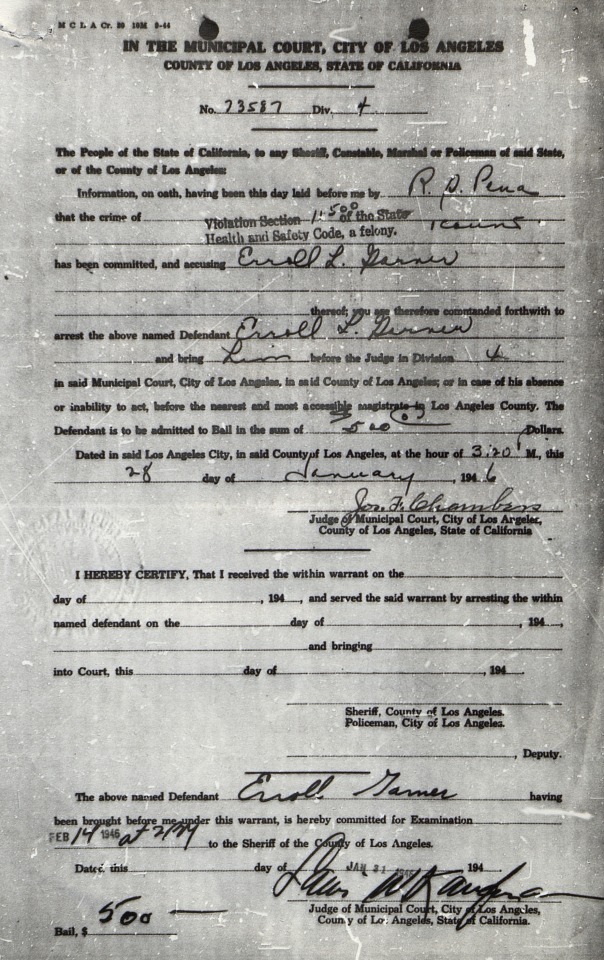 M C L A Cr. 20 10M 9-44
IN THE MUNICIPAL COURT, CITY OF LOS ANGELES
COUNTY OF LOS ANGELES, STATE OF CALIFORNIA
No. 73587 Div. 4
The People of the State of California, to any Sheriff, Constable, Marshal or Policeman of said State,
or of the County of Los Angeles:
Information, on oath, having been this day laid before me by R. P. Pena
that the crime of Violation Section 11500 of the State 1 count
Health and Safety Code, a felony.
has been committed, and accusing Erroll L. Garner
thereof; you are therefore commanded forthwith to
arrest the above named Defendant Erroll L. Garner
and bring him before the Judge in Division 4
in said Municipal Court, City of Los Angeles, in said County of Los Angeles; or in case of his absence
or inability to act, before the nearest and most accessible magistrate in Los Angeles County. The
Defendant is to be admitted to Bail in the sum of 500 Dollars.
Dated in said Los Angeles City, in said County of Los Angeles, at the hour of 3:20 M., this
28 day of January, 1946
Jos. F. Chambers
Judge of Municipal Court, City of Los Angeles,
County of Los Angeles, State of California
I HEREBY CERTIFY, That I received the within warrant on the
day of , 194 , and served the said warrant by arresting the within
named defendant on the day of , 194 ,
and bringing
into Court, this day of , 194
Sheriff, County of Los Angeles.
Policeman, City of Los Angeles.
, Deputy.
The above named Defendant Erroll Garner having
been brought before me under this warrant, is hereby committed for Examination
FEB 14 1946 at 2 PM to the Sheriff of the County of Los Angeles.
Dated this day of JAN 31 1946 194
Judge of Municipal Court, City of Los Angeles,
County of Los Angeles, State of California.
Bail, $ 500